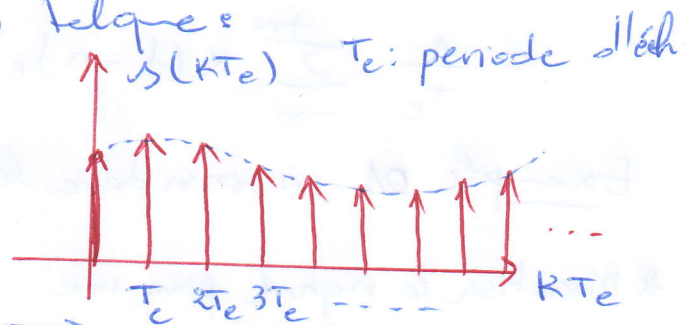 telque:
s(KTe) Te: periode d'éch
Te 2Te 3Te - - - - - KTe
...